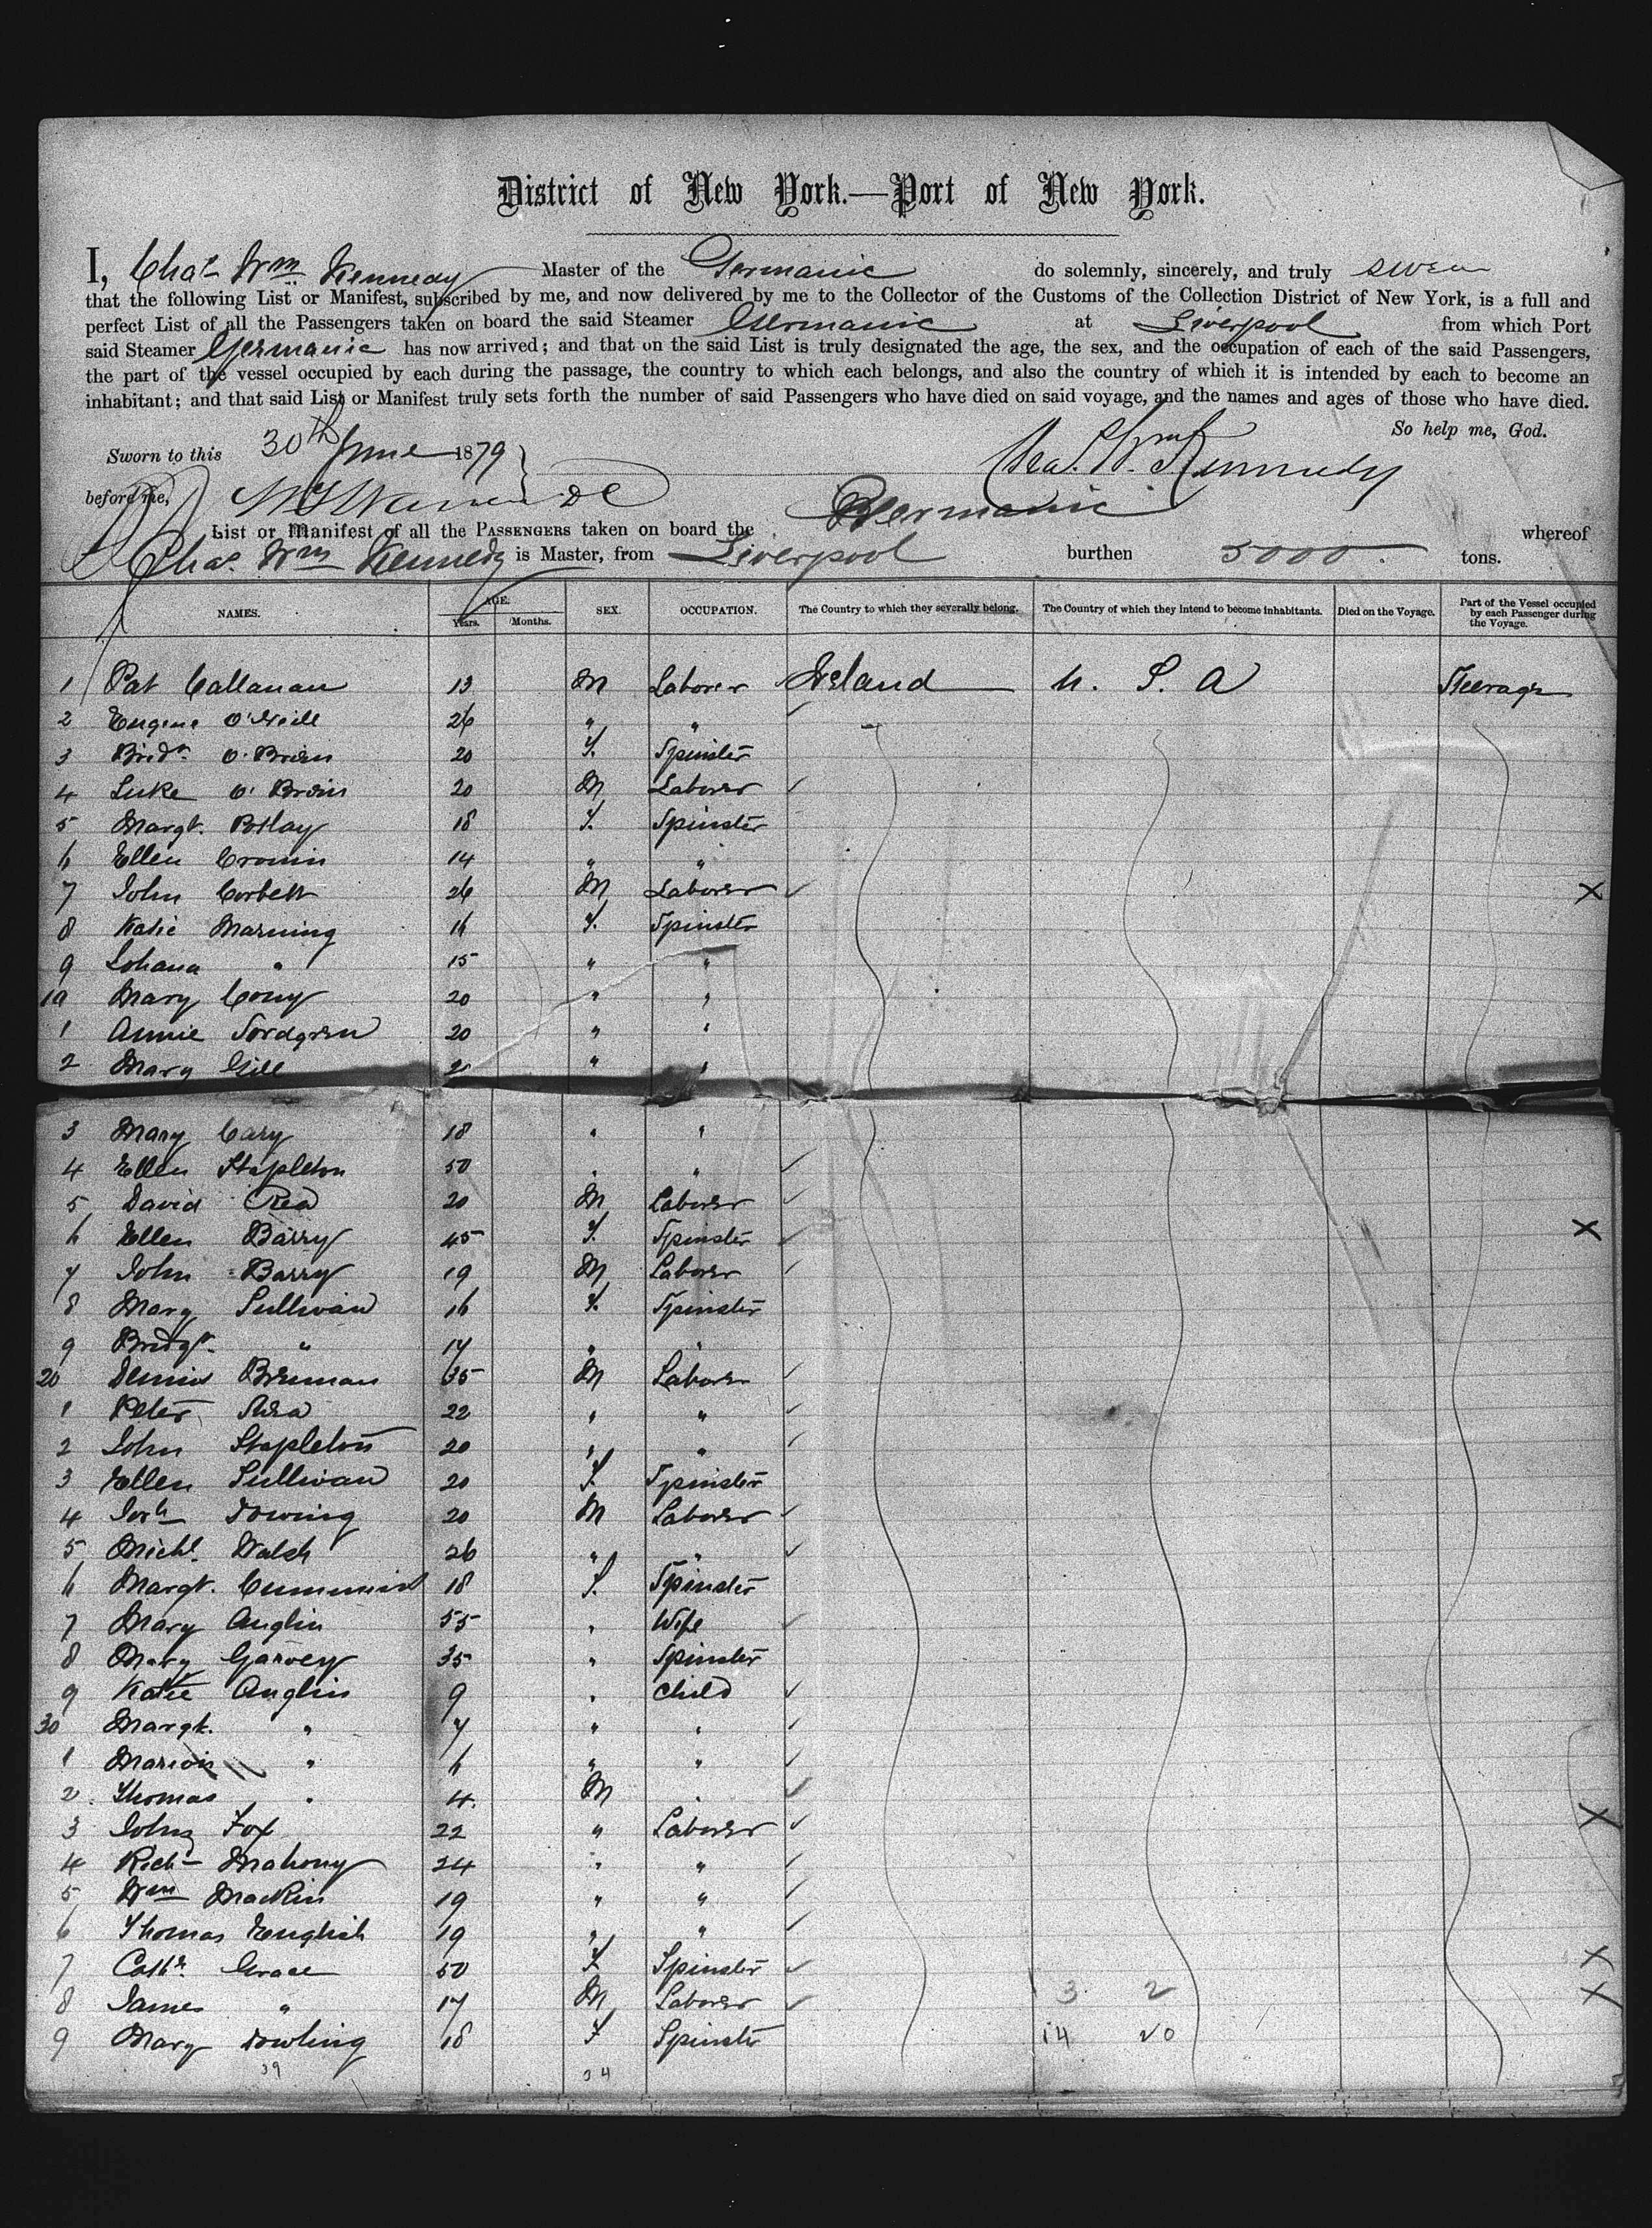 District of New York.—Port of New York.
I, Chas Wm Kennedy Master of the Germanic do solemnly, sincerely, and truly swear
that the following List or Manifest, subscribed by me, and now delivered by me to the Collector of the Customs of the Collection District of New York, is a full and
perfect List of all the Passengers taken on board the said Steamer Germanic at Liverpool from which Port
said Steamer Germanic has now arrived; and that on the said List is truly designated the age, the sex, and the occupation of each of the said Passengers,
the part of the vessel occupied by each during the passage, the country to which each belongs, and also the country of which it is intended by each to become an
inhabitant; and that said List or Manifest truly sets forth the number of said Passengers who have died on said voyage, and the names and ages of those who have died.
So help me, God.
Sworn to this 30th June 1879
Chas. W. Kennedy
before me,
List or Manifest of all the PASSENGERS taken on board the Germanic whereof
Chas. Wm Kennedy is Master, from Liverpool burthen 5000 tons.
NAMES. AGE. Years. Months. SEX. OCCUPATION. The Country to which they severally belong. The Country of which they intend to become inhabitants. Died on the Voyage. Part of the Vessel occupied by each Passenger during the Voyage.
1 Pat Callanan 13 M Laborer Ireland U. S. A Steerage
2 Eugene O'Neill 26 " "
3 Bridt O'Brien 20 F. Spinster
4 Luke O'Brien 20 M Laborer
5 Margt. 18 F. Spinster
6 Ellen Cronin 14 " "
7 John Corbett 26 M Laborer X
8 Katie Manning 16 F. Spinster
9 Johana " 15 " "
10 Mary Cony 20 " "
1 Annie 20 " "
2 Mary Gill " "
3 Mary Cary 18 " "
4 Ellen Stapleton 50 " "
5 David Rea 20 M Laborer
6 Ellen Barry 45 F. Spinster X
7 John Barry 19 M Laborer
8 Mary Sullivan 16 F. Spinster
9 Bridgt. " 17 " "
20 Dennis Brennan 35 M Laborer
1 Peter Rea 22 " "
2 John Stapleton 20 " "
3 Ellen Sullivan 20 F. Spinster
4 Downing 20 M Laborer
5 Michl. Walsh 26 " "
6 Margt. Cummins 18 F. Spinster
7 Mary Anglin 55 " Wife
8 Mary Garvey 35 " Spinster
9 Katie Anglin 9 " Child
30 Margt. " 7 " "
1 Marion " 6 " "
2 Thomas " 4 M "
3 John Fox 22 " Laborer X
4 Richd Mahony 24 " "
5 Wm Mackin 19 " "
6 Thomas English 19 " "
7 Cathe Grace 50 F Spinster X
8 James " 17 M Laborer 3 2 X
9 Mary Dowling 18 F Spinster 14 20
39 34